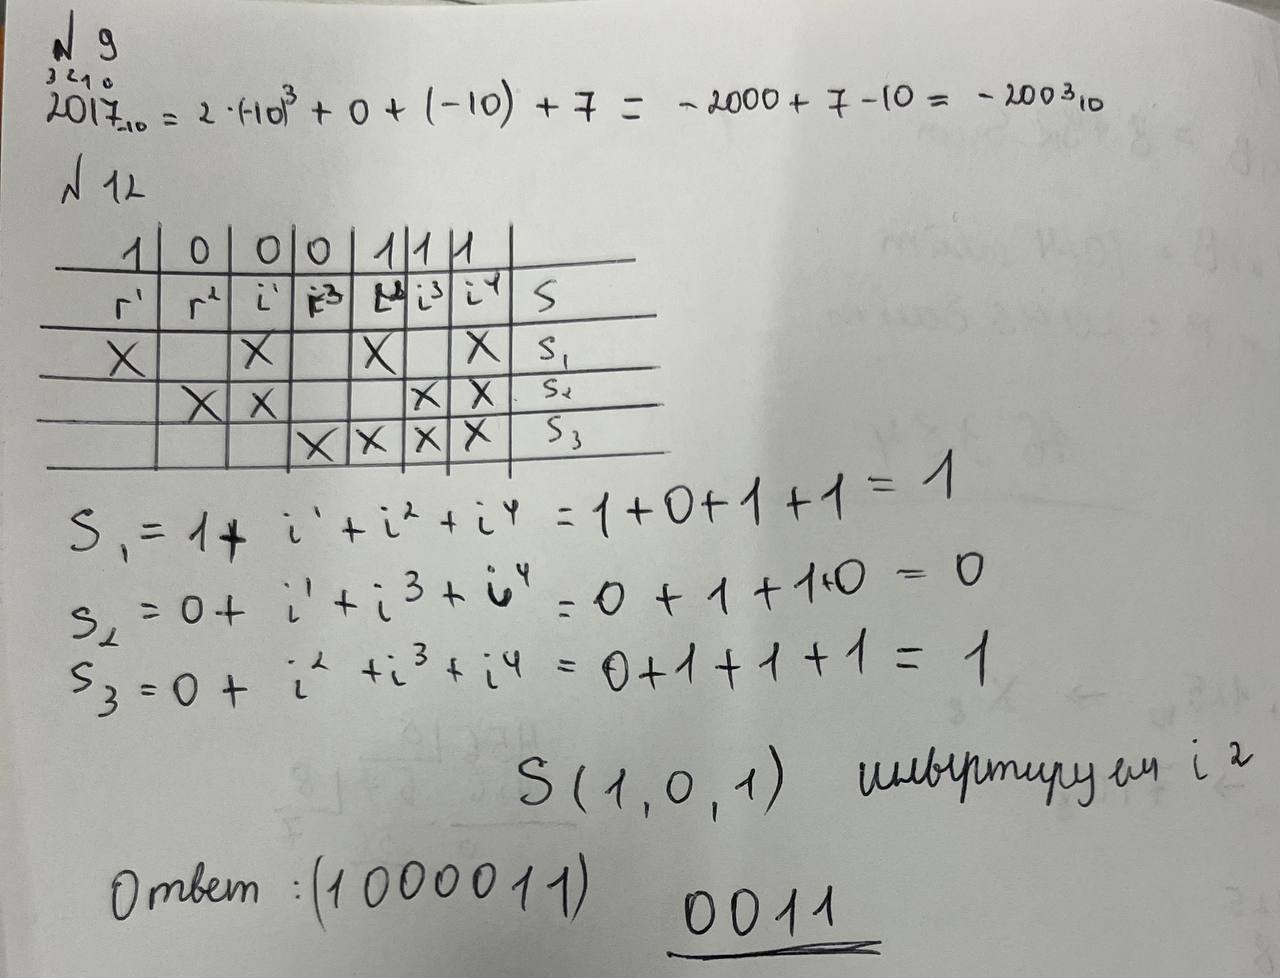 № 9
3 2 1 0
2017₋₁₀ = 2·(-10)³ + 0 + (-10) + 7 = -2000 + 7 - 10 = -2003₁₀
№ 12
1 0 0 0 1 1 1
r¹ r² i¹ r³ i² i³ i⁴ S
X X X X S₁
X X X X S₂
X X X X S₃
S₁ = 1 + i¹ + i² + i⁴ = 1 + 0 + 1 + 1 = 1
S₂ = 0 + i¹ + i³ + i⁴ = 0 + 1 + 1 + 0 = 0
S₃ = 0 + i² + i³ + i⁴ = 0 + 1 + 1 + 1 = 1
S(1, 0, 1) инвертируем i²
Ответ : (1000011) 0011